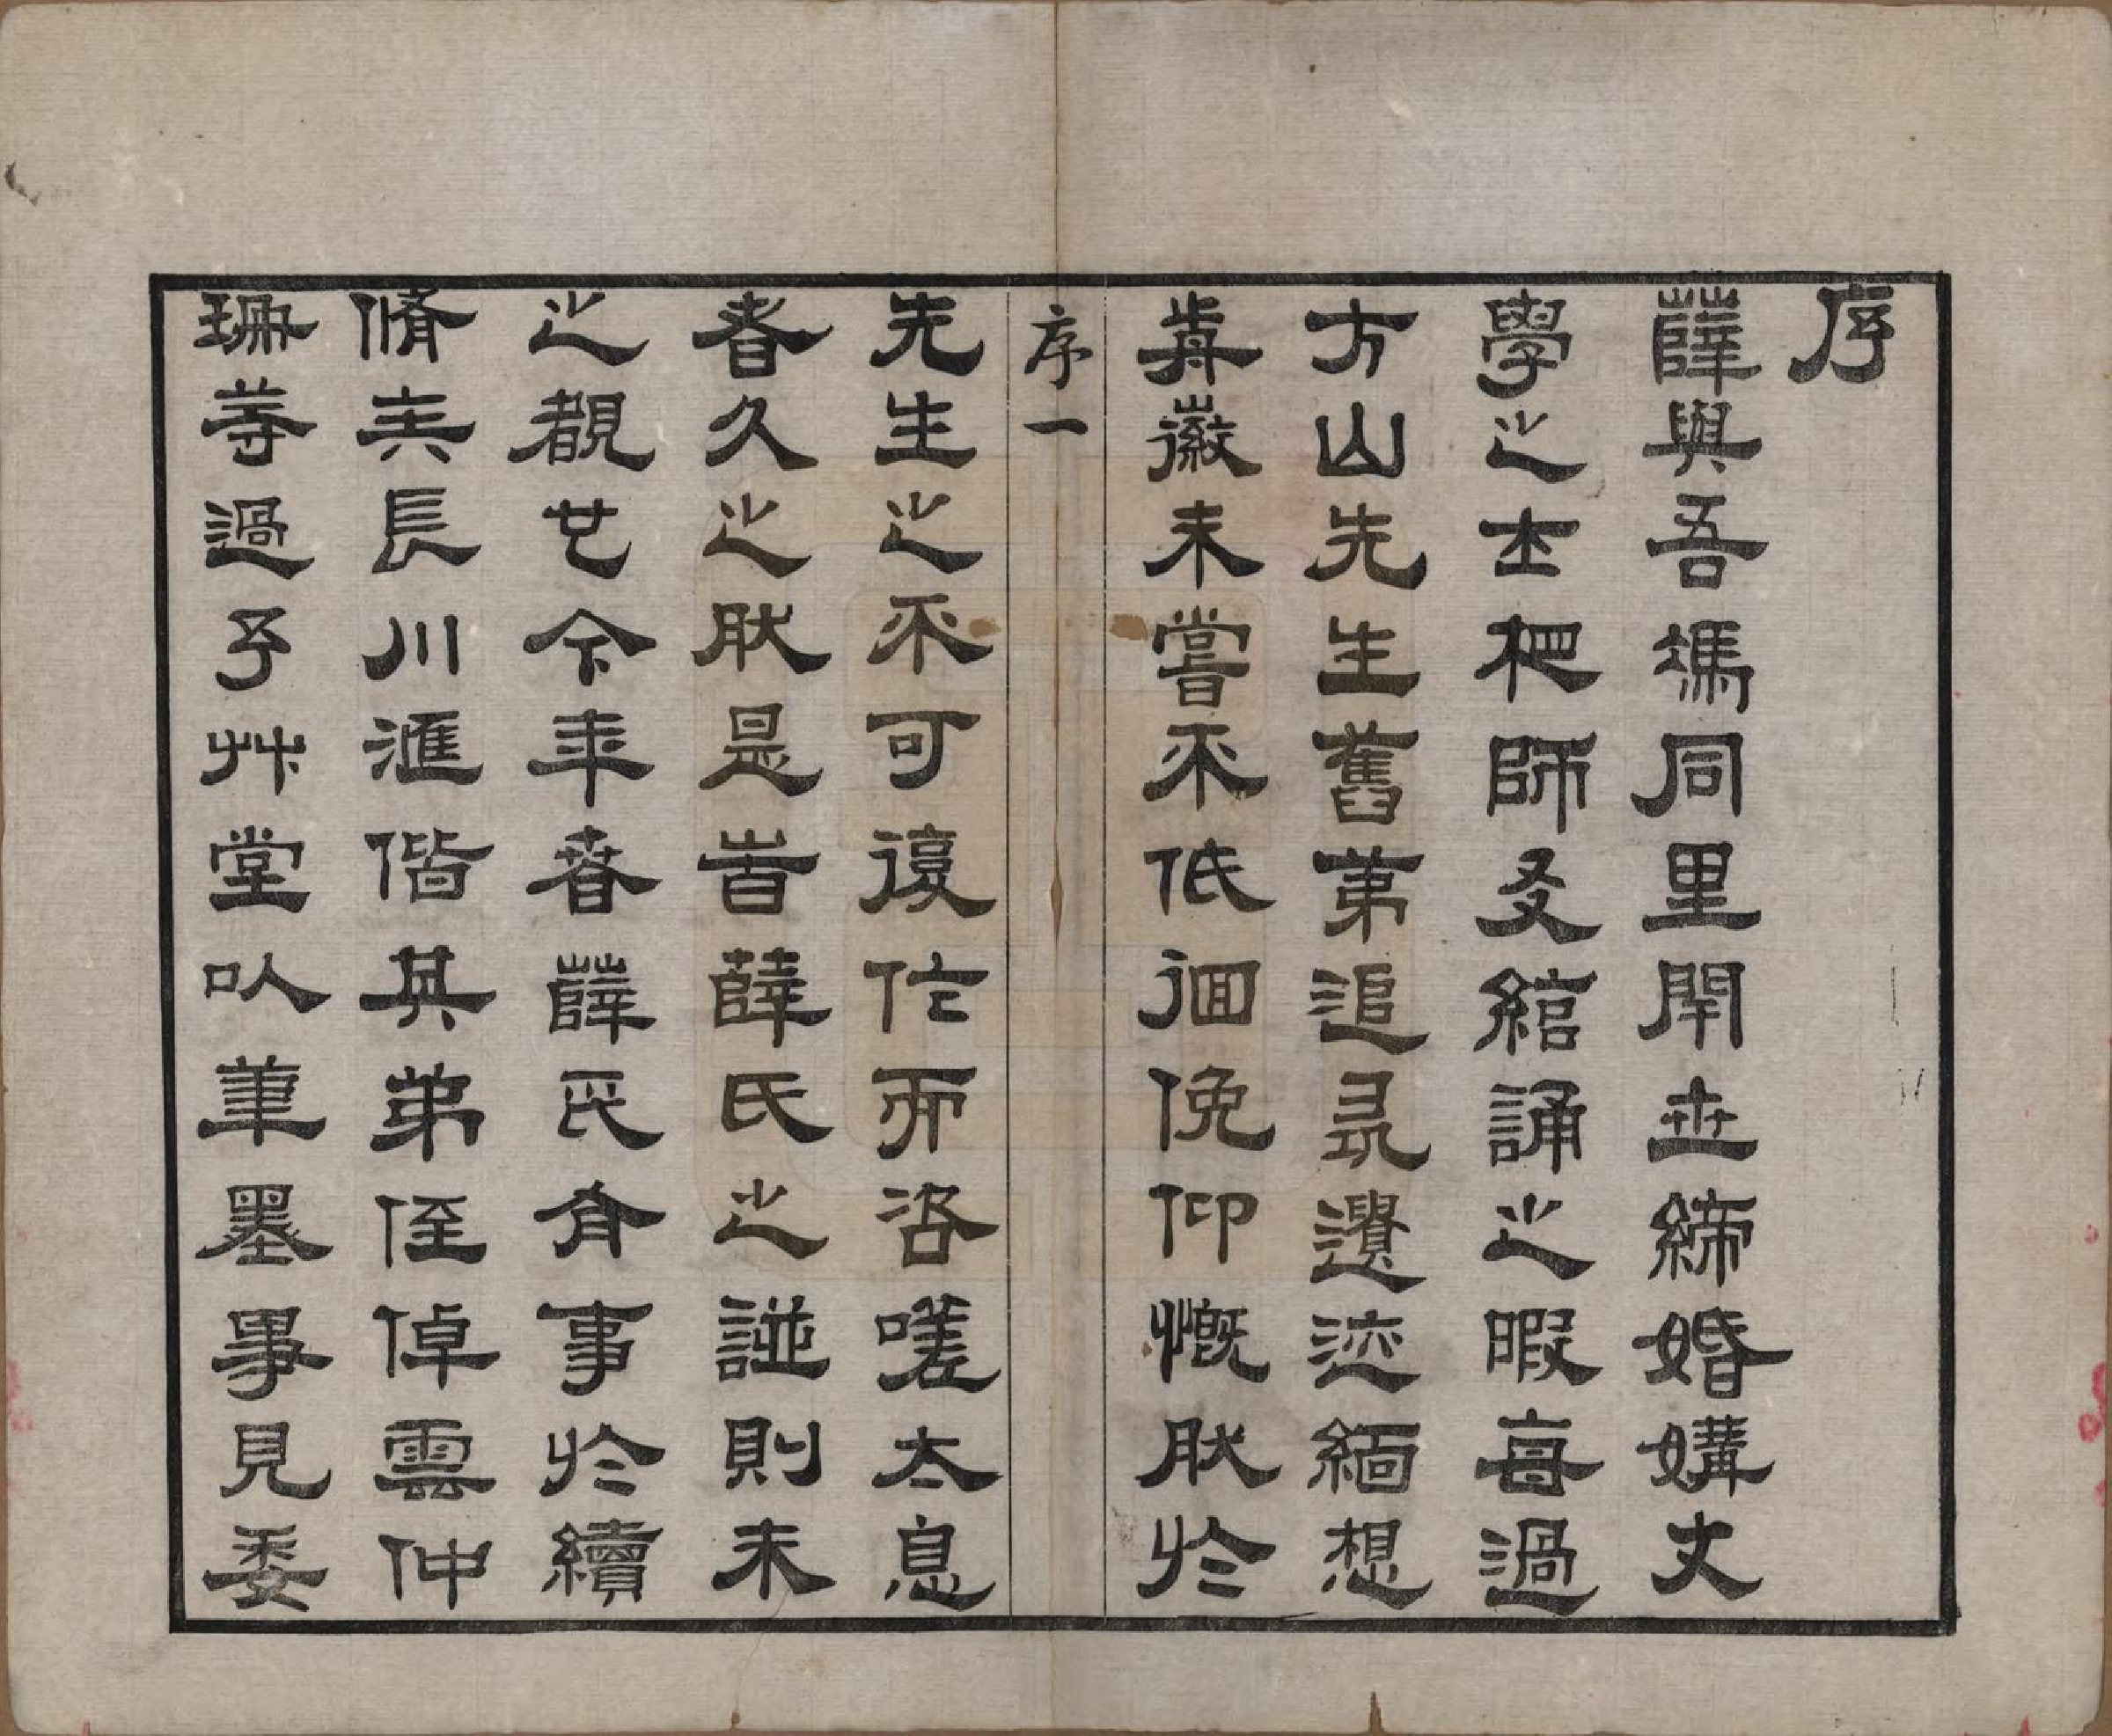 序
薛與吾馮同里閈世締婚媾文
學之士師友綰誦之暇每過
方山先生舊第追尋遺迹緬想
歬徽未嘗不低徊俛仰慨肰於
序一
先生之不可復作而咨嗟太息
者久之肰是旹薛氏之諩則未
之覩也今年春薛氏有事於續
脩長川滙偕其弟侄倬雲仲
珊等過予艸堂以筆墨事見委